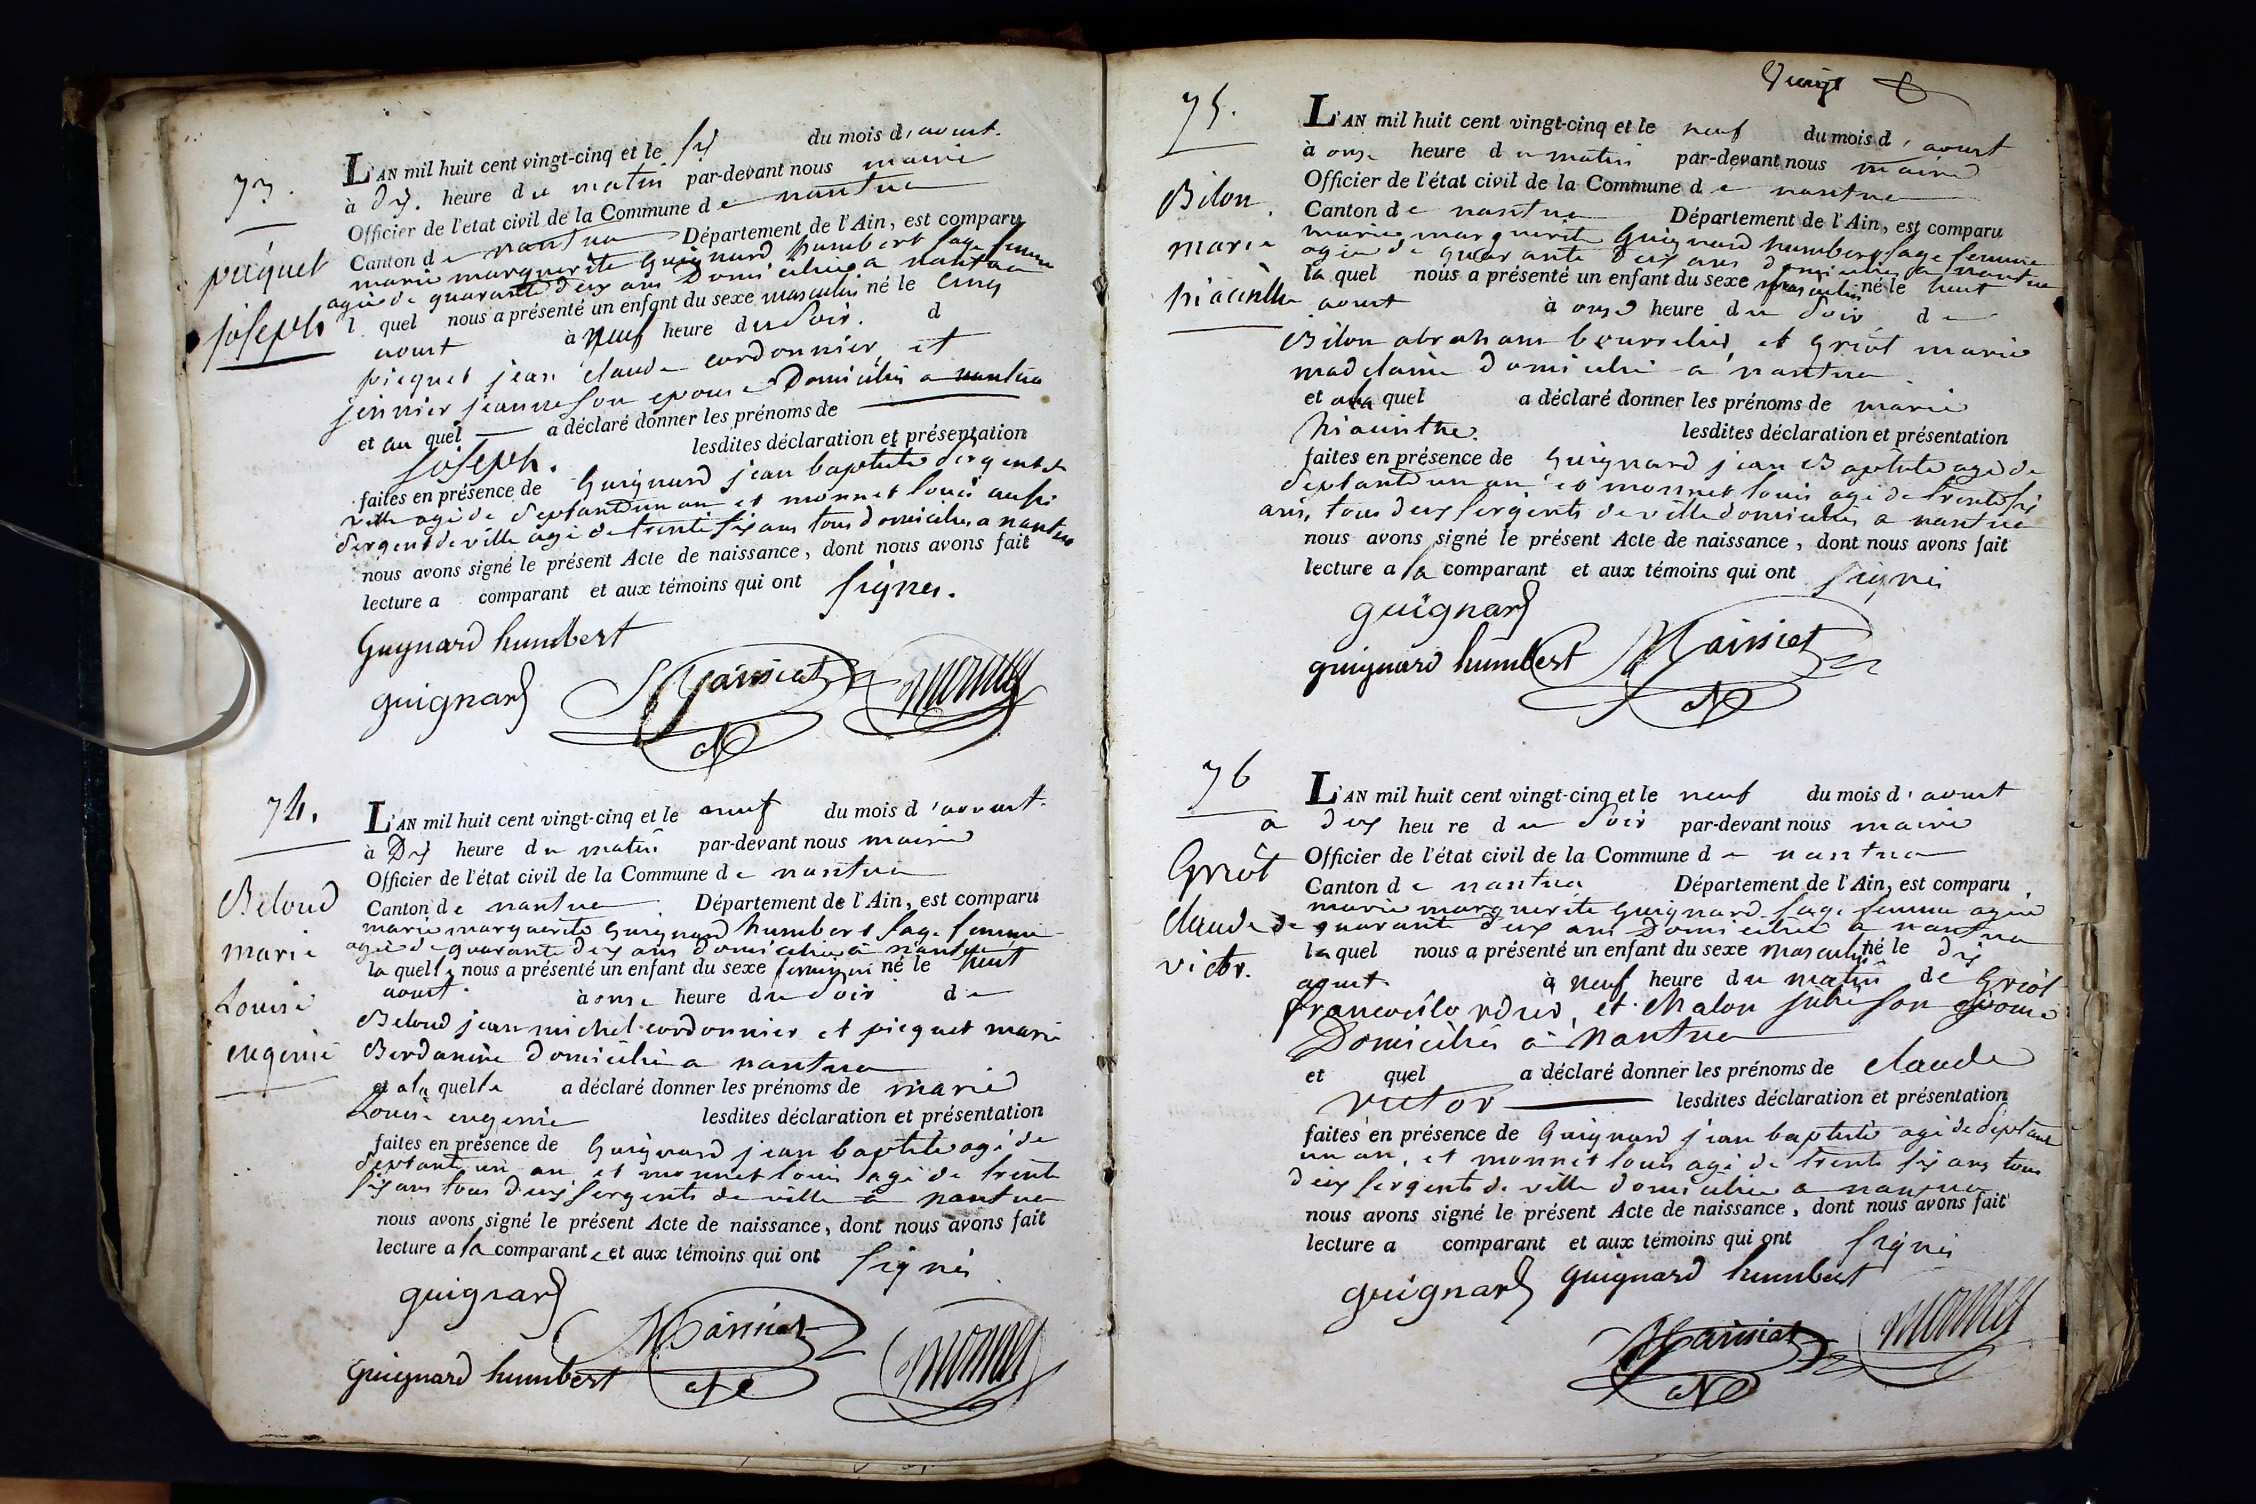 73.
picquet
joseph
L'AN mil huit cent vingt-cinq et le six du mois d'aoust.
à dix. heure du matin par-devant nous maire
Officier de l'état civil de la Commune de nantua
Canton de nantua Département de l'Ain, est comparu
marie marguerite Guignard humbert sage femme
agée de quarante deux ans Domiciliée a nantua
l quel nous a présenté un enfant du sexe masculin né le cinq
aoust à neuf heure du soir. d
picquet jean claude cordonnier et
jeannesson epouse Domiciliés a nantua
et au quel a déclaré donner les prénoms de
joseph. lesdites déclaration et présentation
faites en présence de Guignard jean baptiste sergent de
ville agé de septante un an et monnet louis aussi
sergent de ville agé de trente six ans tous domiciliés a nantua
nous avons signé le présent Acte de naissance, dont nous avons fait
lecture a comparant et aux témoins qui ont signés.
Guignard humbert
guignard Maissiat monnet
74.
Beloud
marie
Louise
eugenie
L'AN mil huit cent vingt-cinq et le neuf du mois d'aoust.
à Dix heure du matin par-devant nous maire
Officier de l'état civil de la Commune de nantua
Canton de nantua Département de l'Ain, est comparu
marie marguerite Guignard humbert sage femme
agée de quarante deux ans domiciliée à nantua
la quelle nous a présenté un enfant du sexe feminin né le huit
aoust. à onze heure du soir de
Beloud jean michel cordonnier et picquet marie
domiciliés a nantua
et a la quelle a déclaré donner les prénoms de marie
Louise eugenie lesdites déclaration et présentation
faites en présence de Guignard jean baptiste agé de
septante un an et monnet louis agé de trente
six ans tous deux sergents de ville à nantua
nous avons signé le présent Acte de naissance, dont nous avons fait
lecture a la comparante et aux témoins qui ont signés
guignard
Maissiat monnet
guignard humbert
75.
Bilon
marie
hiacinthe
L'AN mil huit cent vingt-cinq et le neuf du mois d'aoust
à onze heure du matin par-devant nous maire
Officier de l'état civil de la Commune de nantua
Canton de nantua Département de l'Ain, est comparu
marie marguerite Guignard humbert sage femme
agée de quarante deux ans domiciliée a nantua
la quel nous a présenté un enfant du sexe masculin né le huit
aoust à onze heure du soir de
Bilon abraham bourrelier et Griot marie
madelaine domiciliés a nantua
et quel a déclaré donner les prénoms de marie
hiacinthe. lesdites déclaration et présentation
faites en présence de Guignard jean Baptiste agé de
septante un an et monnet louis agé de trente six
ans, tous deux sergents de ville domiciliés a nantua
nous avons signé le présent Acte de naissance, dont nous avons fait
lecture a la comparant et aux témoins qui ont signés
guignard
guignard humbert Maissiat
76
Griot
claude
victor.
L'AN mil huit cent vingt-cinq et le neuf du mois d'aoust
a deux heure du soir par-devant nous maire
Officier de l'état civil de la Commune de nantua
Canton de nantua Département de l'Ain, est comparu
marie marguerite Guignard sage femme agée
de quarante deux ans Domiciliée a nantua
la quel nous a présenté un enfant du sexe masculin né le dix
aoust à neuf heure du matin de Griot
et Chalon julie son epouse
Domiciliés à nantua
et quel a déclaré donner les prénoms de claude
victor lesdites déclaration et présentation
faites en présence de Guignard jean baptiste agé de septante
un an, et monnet louis agé de trente six ans tous
deux sergents de ville domiciliés a nantua
nous avons signé le présent Acte de naissance, dont nous avons fait
lecture a comparant et aux témoins qui ont signés
guignard guignard humbert
Maissiat monnet